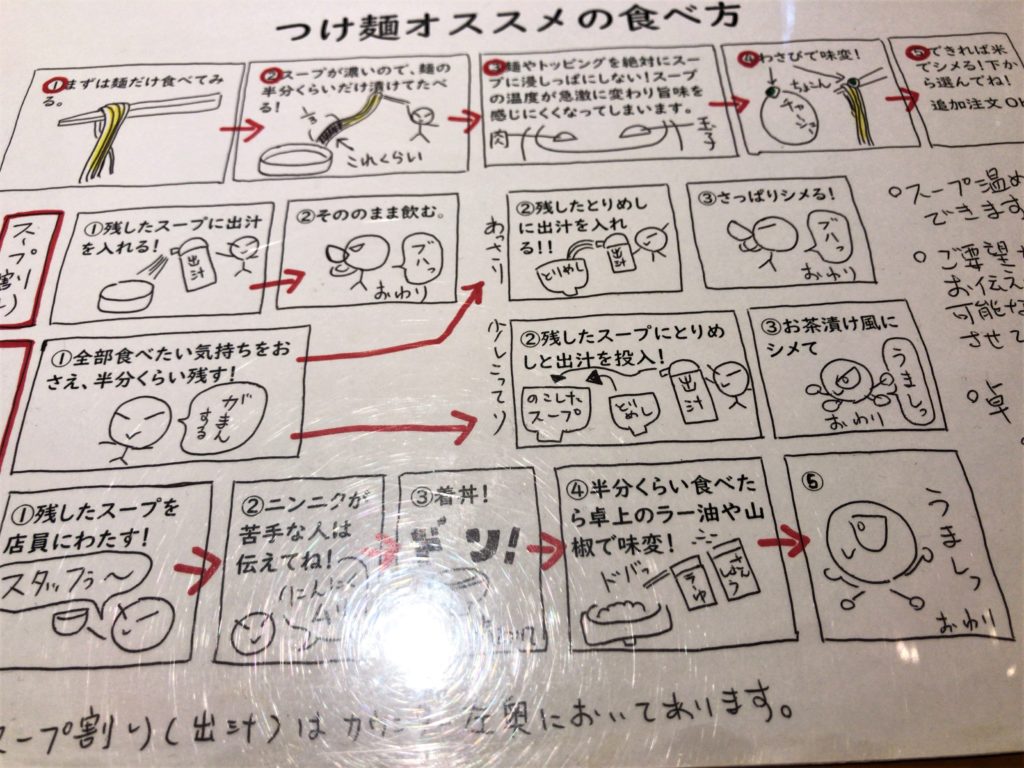 つけ麺オススメの食べ方
①まずは麺だけ食べてみ
る。
②スープが濃いので、麺の
半分くらいだけ漬けてたべ
る!
これくらい
③麺やトッピングを絶対にスー
プに浸しっぱにしない!スープ
の温度が急激に変わり旨味を
感じにくくなってしまいます。
肉
玉子
④わさびで味変!
ちょん
チャーシュー
⑤できれば米
でシメる!下か
ら選んでね!
追加注文OK
スープ割り
①残したスープに出汁
を入れる!
出汁
②そののまま飲む。
プハっ
おわり
あっさり
②残したとりめし
に出汁を入れ
る!!
とりめし
出汁
③さっぱりシメる!
プハっ
おわり
①全部食べたい気持ちをお
さえ、半分くらい残す!
がまん
する
少しこってり
②残したスープにとりめ
しと出汁を投入!
のこした
スープ
とりめし
出汁
③お茶漬け風に
シメて
うましっ
おわり
①残したスープを
店員にわたす!
スタッフぅ〜
②ニンニクが
苦手な人は
伝えてね!
にんにく
ムリ
③着丼!
ドン!
④半分くらい食べた
ら卓上のラー油や山
椒で味変!
ドバっ
ラーゆ
さんしょう
⑤
うましっ
おわり
○スープ温め
できます
○ご要望
お伝え
可能な
させて
○卓
スープ割り(出汁)は
奥においてあります。